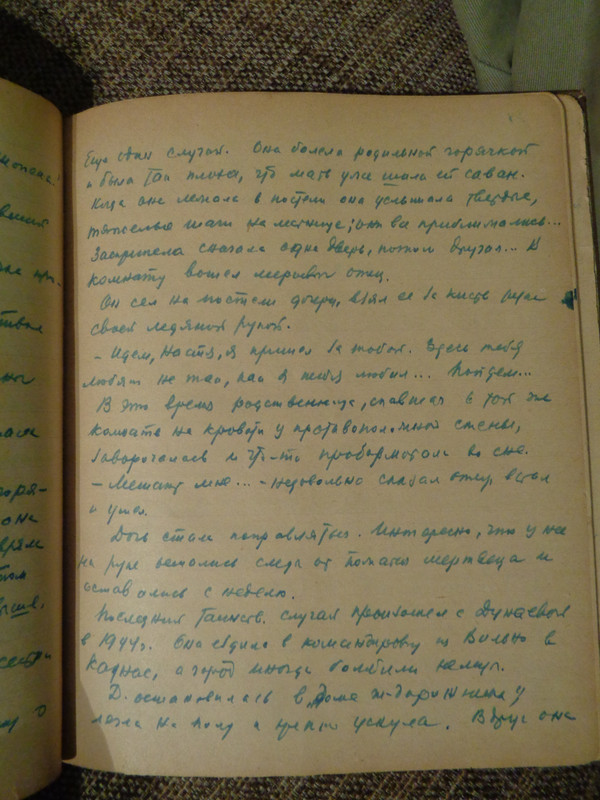 шопена.
Еще один случай. Она болела родильной горячкой
и была так плоха, что мать уже шила ей саван.
Когда она лежала в постели она услышала твердые,
тяжелые шаги на лестнице; они все приближались...
Заскрипела сначала одна дверь, потом другая... В
комнату вошел мертвый отец.
Он сел на постели дочери, взял ее за кисть руки
своей ледяной рукой.
– Идем, Настя, я пришел за тобой. Здесь тебя
любят не так, как я тебя любил... Пойдем...
В это время родственница, спавшая в той же
комнате на кровати у противоположной стены,
заворочалась и что-то пробормотала во сне.
– Мешают мне... – недовольно сказал отец, встал
и ушел.
Дочь стала поправляться. Интересно, что у нее
на руке остались следы от пожатия мертвеца и
оставались с неделю.
Последний таинств. случай произошел с Дунаевой
в 1944г. Она ездила в командировку из Вильно в
Каунас, а город иногда бомбили немцы.
Д. остановилась в „Доме
легла на полу и крепко уснула. Вдруг она